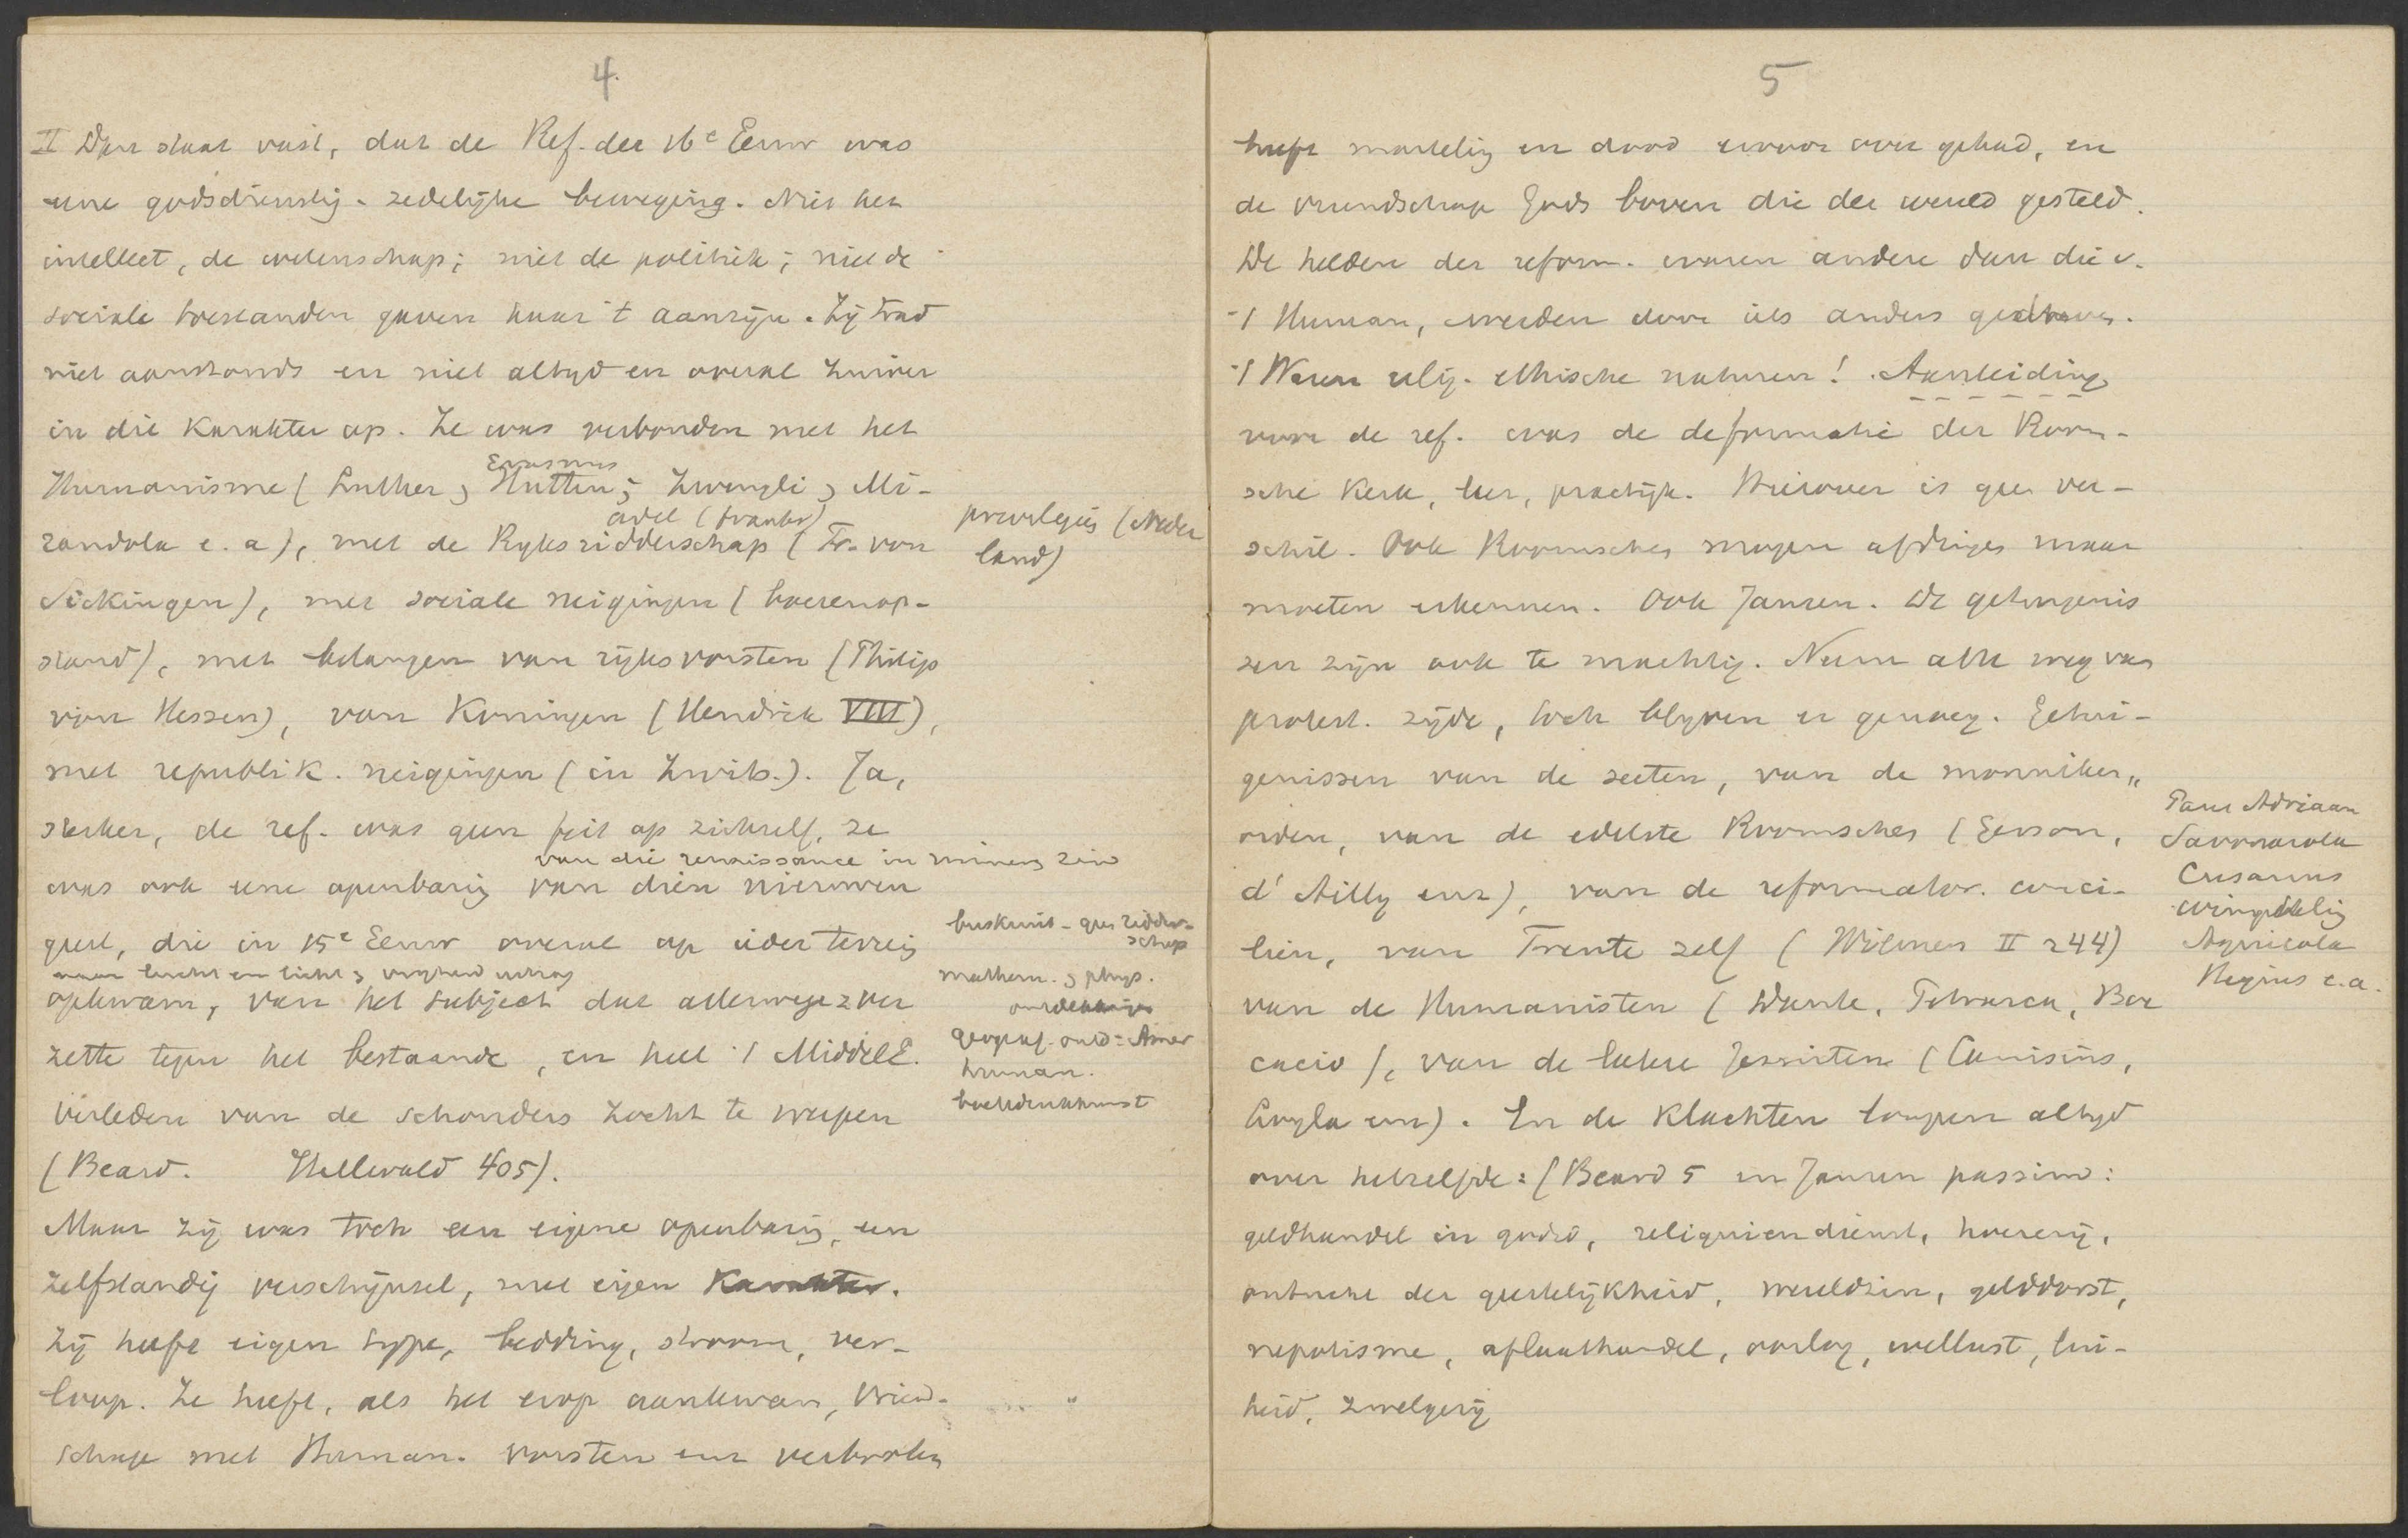 4.
II Dan staat vast, dat de Ref. der 16e Eeuw was
eene godsdienstig-zedelijke beweging. Niet het
intellect, de wetenschap; niet de politiek; niet de
sociale toestanden gaven haar 't aanzijn. Zij trad
niet aanstonds en niet altyd en overal zuiver
in die karakter op. Ze was verbonden met het
Erasmus
Humanisme (Luther, Hutten; Zwingli, Mi-
adel (Frankr)
randola e.a), met de Ryksridderschap (Fr. von
privilegies (Neder
land)
Sickingen), met sociale neigingen (boerenop-
stand), met belangen van rijksvorsten (Philips
van Hessen), van Koningen (Hendrik VIII),
met republik. neigingen (in Zwits.). Ja,
sterker, de ref. was geen feit op zichzelf, ze
van die renaissance in ruimen zin
was ook eene openbaring van dien nieuwen
geest, die in 15e Eeuw overal op ieder terrein
naar lucht en licht, vryheid
opkwam, van het subject dat allerwege zich
zette tegen het bestaande, en heel 't MiddelE.
verleden van de schouders zocht te werpen
(Beard. Hellwald 405).
buskruit - geen ridder-
schap
mathem. & phys.
Geograf. ontd = Amer
human.
boekdrukkunst
Maar zij was toch een eigene openbaring, een
zelfstandig verschijnsel, met eigen karakter.
Zij heeft eigen type, bedding, stroom, ver-
loop. Ze heeft, als het erop aankwam, vriend-
schap met Human. vorsten enz verbroken
5
heeft marteling en dood ervoor over gehad, en
de vriendschap Gods boven die der wereld gesteld.
De helden der reform. waren andere dan die v.
't Human, werden door iets anders gedreven.
't Waren relig. ethische naturen! Aanleiding
voor de ref. was de deformatie der Room-
sche kerk, leer, practijk. Hierover is geen ver-
schil. Ook Roomschen mogen afdingen maar
moeten erkennen. Ook Jansen. De getuigenis
sen zijn ook te machtig. Neem alle weg van
protest. zijde, toch blyven er genoeg. Getui-
genissen van de secten, van de monniken-
orden, van de edelste Roomschen (Gerson,
d'Ailly enz), van de reformator. conci-
liën, van Trente zelf (Wilmer II 244)
van de Humanisten (Dante, Petrarca, Boc
cacio), van de latere Jesuiten (Canisius,
Loyla enz). En de klachten loopen altyd
over hetzelfde: (Beard 5 en Jansen passim:
geldhandel in godsd, reliquiendienst, hoererij,
ontucht der geestelijkheid, wereldzin, gelddorst,
nepotisme, aflaathandel, oorlog, wellust, lui-
heid, zwelgerij
Paus Adriaan
Savonarola
Cusanus
Agricola
Hegius e.a.